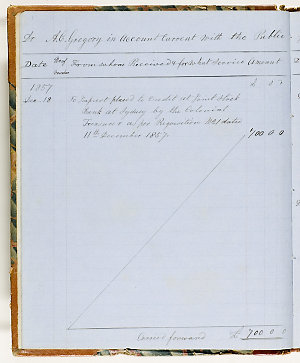 Dr A.C. Gregory in Account Current with the Public
Date No of Voucher From whom Received & for what Service Amount
£ s d
1857
Dec. 18 To Imprest placed to Credit at Joint Stock
Bank at Sydney by the Colonial
Treasurer as per Requisition No 1 dated
11th December 1857. 700 0 0
Carried forward £ 700 0 0